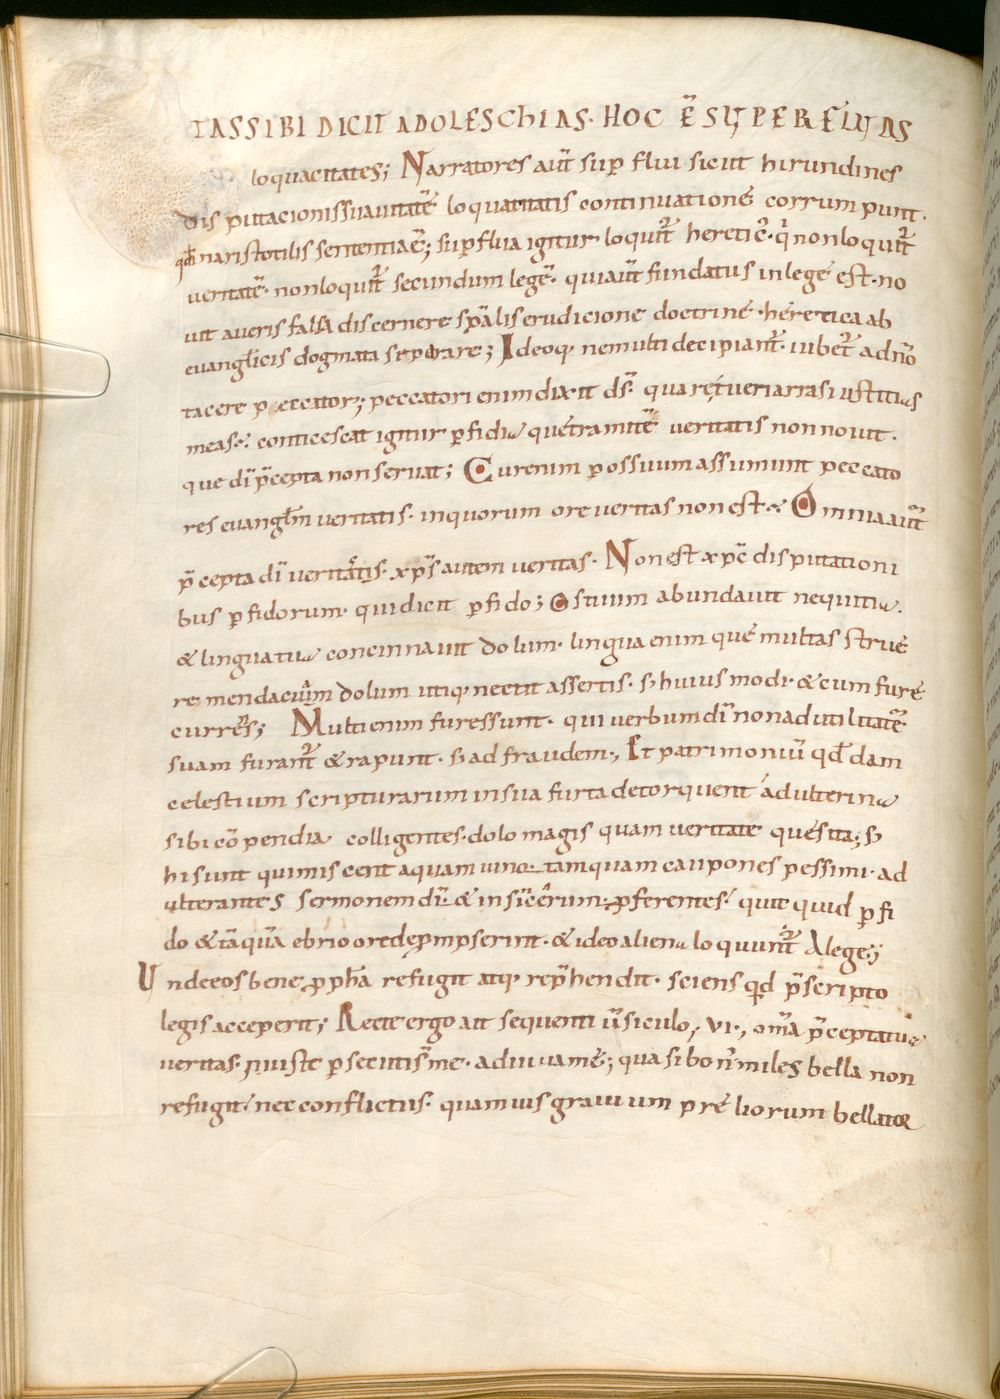 TASSIBI DICIT ADOLESCHIAS. HOC Ē SUPERFLUAS
loquacitates; Narratores aut̄ sup̄ flui sicut hirundines
disputacionis suauitatē loquacitatis continuationē corrumpunt.
in aristotilis sententia ē; sup̄flua igitur loquit̄ heretic̄. q̄ non loquit̄
ueritatē. non loquit̄ secundum legē. quia ut̄ fundatus in lege est. no
uit a ueris falsa discernere sp̄alis erudicione doctrinę. heretica ab
euanglicis dogmata separare; Ideoq. ne multi decipiant̄. iubet̄ a dn̄o
tacere peccator; peccatori enim dixit ds̄. quare tu enarras iustitias
meas; conticescat igitur p̄fidia que tramitē ueritatis non nouit.
que dī p̄cepta non seruat; Cur enim possuum assumunt peccato
res euanglm̄ ueritatis. in quorum ore ueritas non est; Omnia aut̄
p̄cepta dī ueritatis. xp̄s autem ueritas. Non est xp̄c disputationi
bus p̄fidorum. qui dicit p̄fido; Os tuum abundauit nequitia.
& lingua tua concinnauit dolum. lingua enim que multas strue
re mendacium dolum utiq. nectit assertis. s; huius modi. & cum fure
curres; Multi enim fures sunt. qui uerbum dī non ad utilitatē
suam furant̄ & rapunt. s; ad fraudem; Et patrimoniū qd̄dam
celestium scripturarum in sua furta detorquent adulterina
sibi cōpendia colligentes. dolo magis quam ueritate quesita; s;
hi sunt qui miscent aquam uino. tamquam caupones pessimi. ad
ulterantes sermonem dī. & insincerum p̄ferentes. quicquid p̄fi
do & tāquā ebrio ore deprompserint. & ideo aliena loquunt̄ A lege;
Unde eos bene p̄ph̄a refugit atq. rep̄hendit. sciens qd p̄scripto
legis acceperit; Recte ergo ait sequenti ūsiculo, VI., om̄a p̄cepta tua
ueritas. iniuste p̄secuti s̄ me. adiuua me; quasi bon̄ miles bella non
refugit. nec conflictus. quamuis grauium preliorum bellator